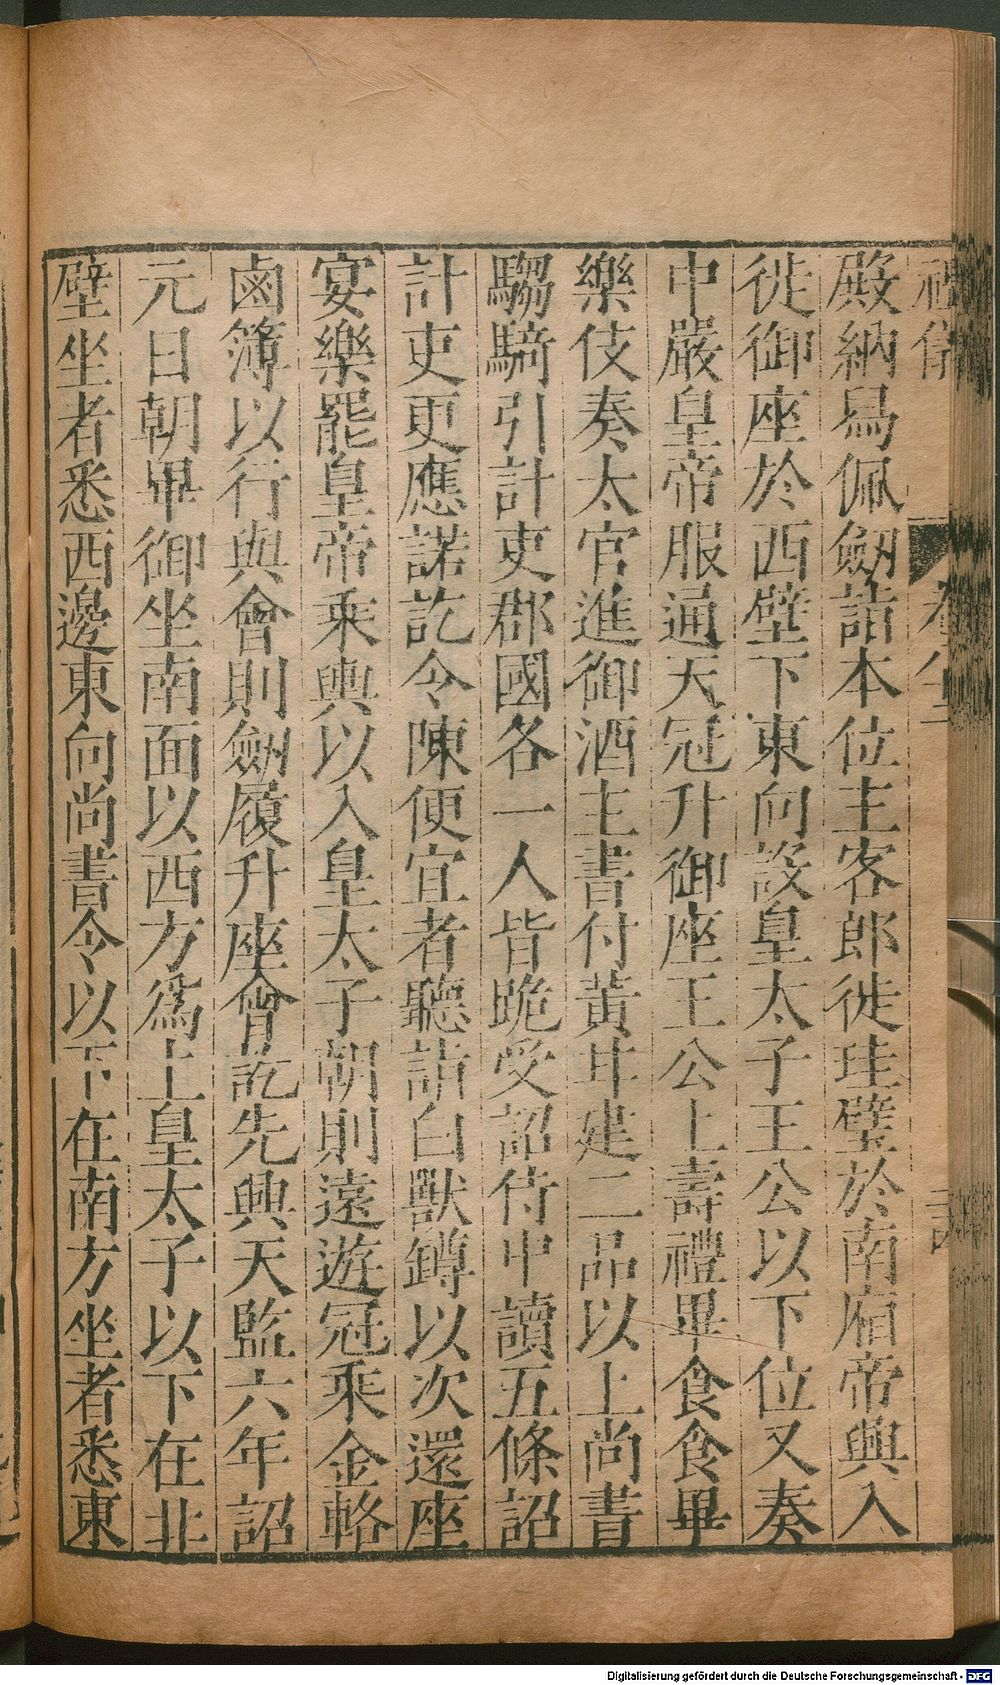 禮儀
殿納舃佩劒詣本位主客郎徙珪璧於南廂帝興入
徙御座於西壁下東向設皇太子王公以下位又奏
中嚴皇帝服通天冠升御座王公上壽禮畢食食畢
樂伎奏太官進御酒主書付黃甘逮二品以上尚書
騶騎引計吏郡國各一人皆跪受詔侍中讀五條詔
計吏更應諾訖令陳便宜者聽詣白獸罇以次還座
宴樂罷皇帝乘輿以入皇太子朝則遠遊冠乘金輅
鹵簿以行與會則劒履升座會訖先興天監六年詔
元日朝畢御坐南面以西方為上皇太子以下在北
壁坐者悉西邊東向尚書令以下在南方坐者悉東
Digitalisierung gefördert durch die Deutsche Forschungsgemeinschaft - DFG